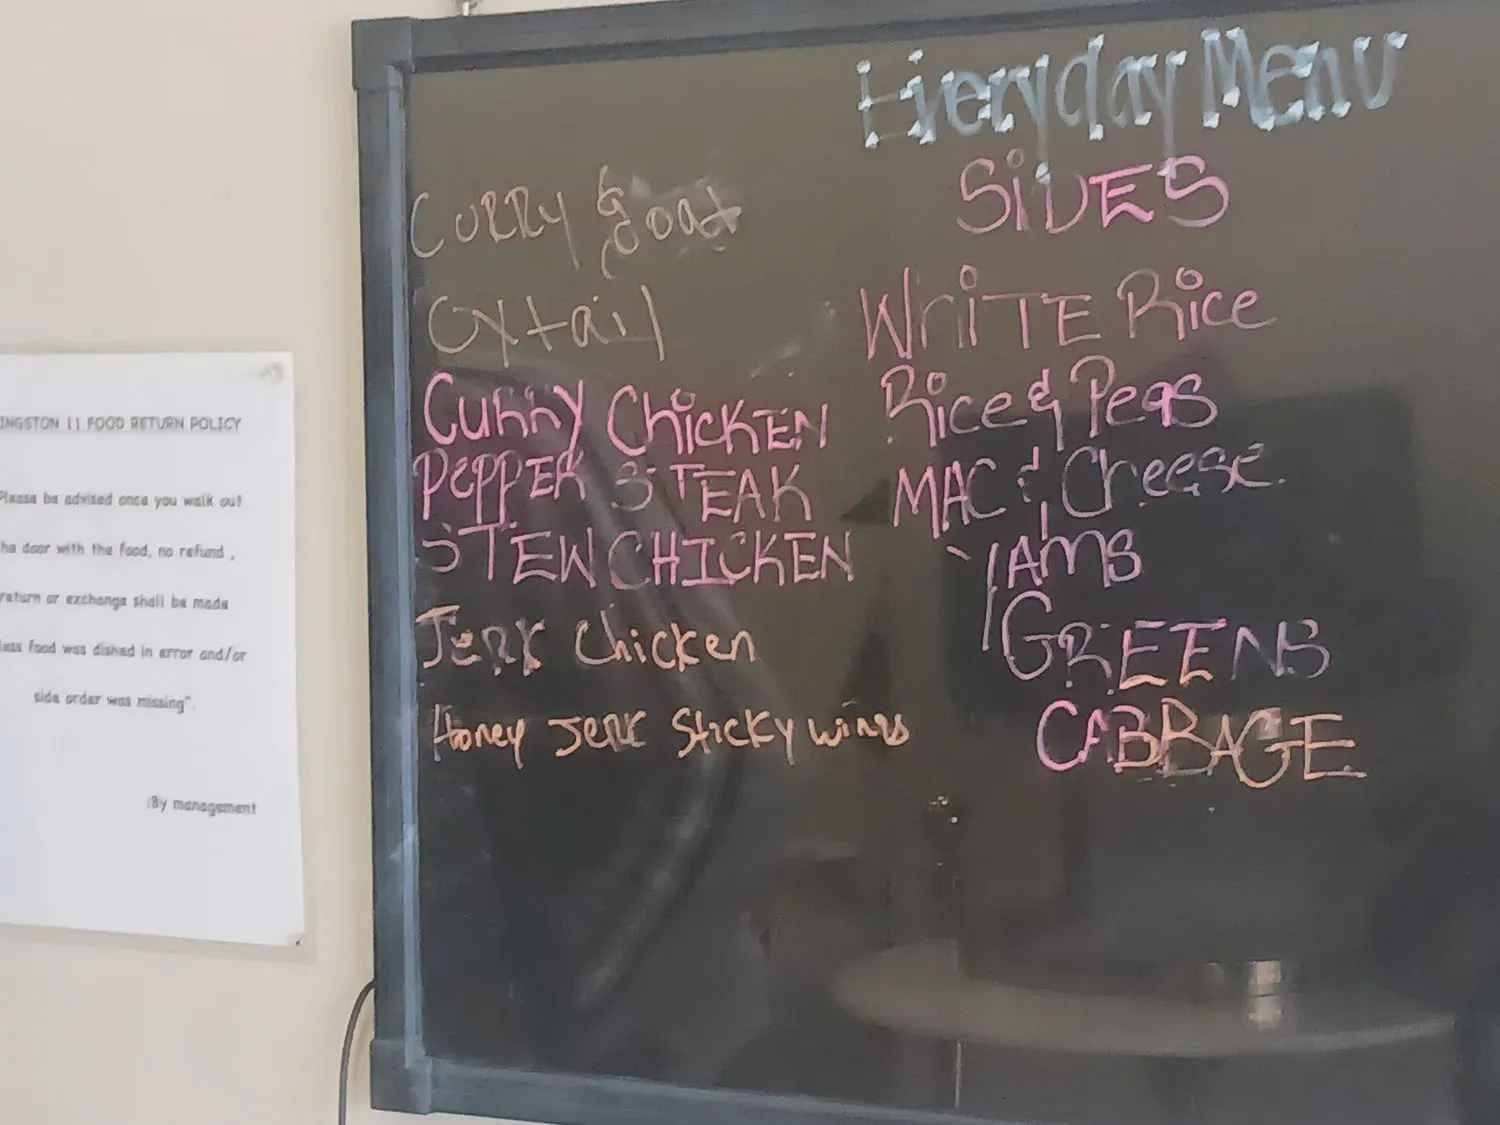 Everyday Menu
CURRY goat
Oxtail
CURRY CHICKEN
PEPPER STEAK
STEW CHICKEN
JERK Chicken
Honey JERK Sticky wings
SIDES
WHITE Rice
Rice & Peas
MAC & Cheese
YAMS
GREENS
CABBAGE
INGSTON 11 FOOD RETURN POLICY
Please be advised once you walk out
he door with the food, no refund ,
return or exchange shall be made
less food was dished in error and/or
side order was missing".
:By management